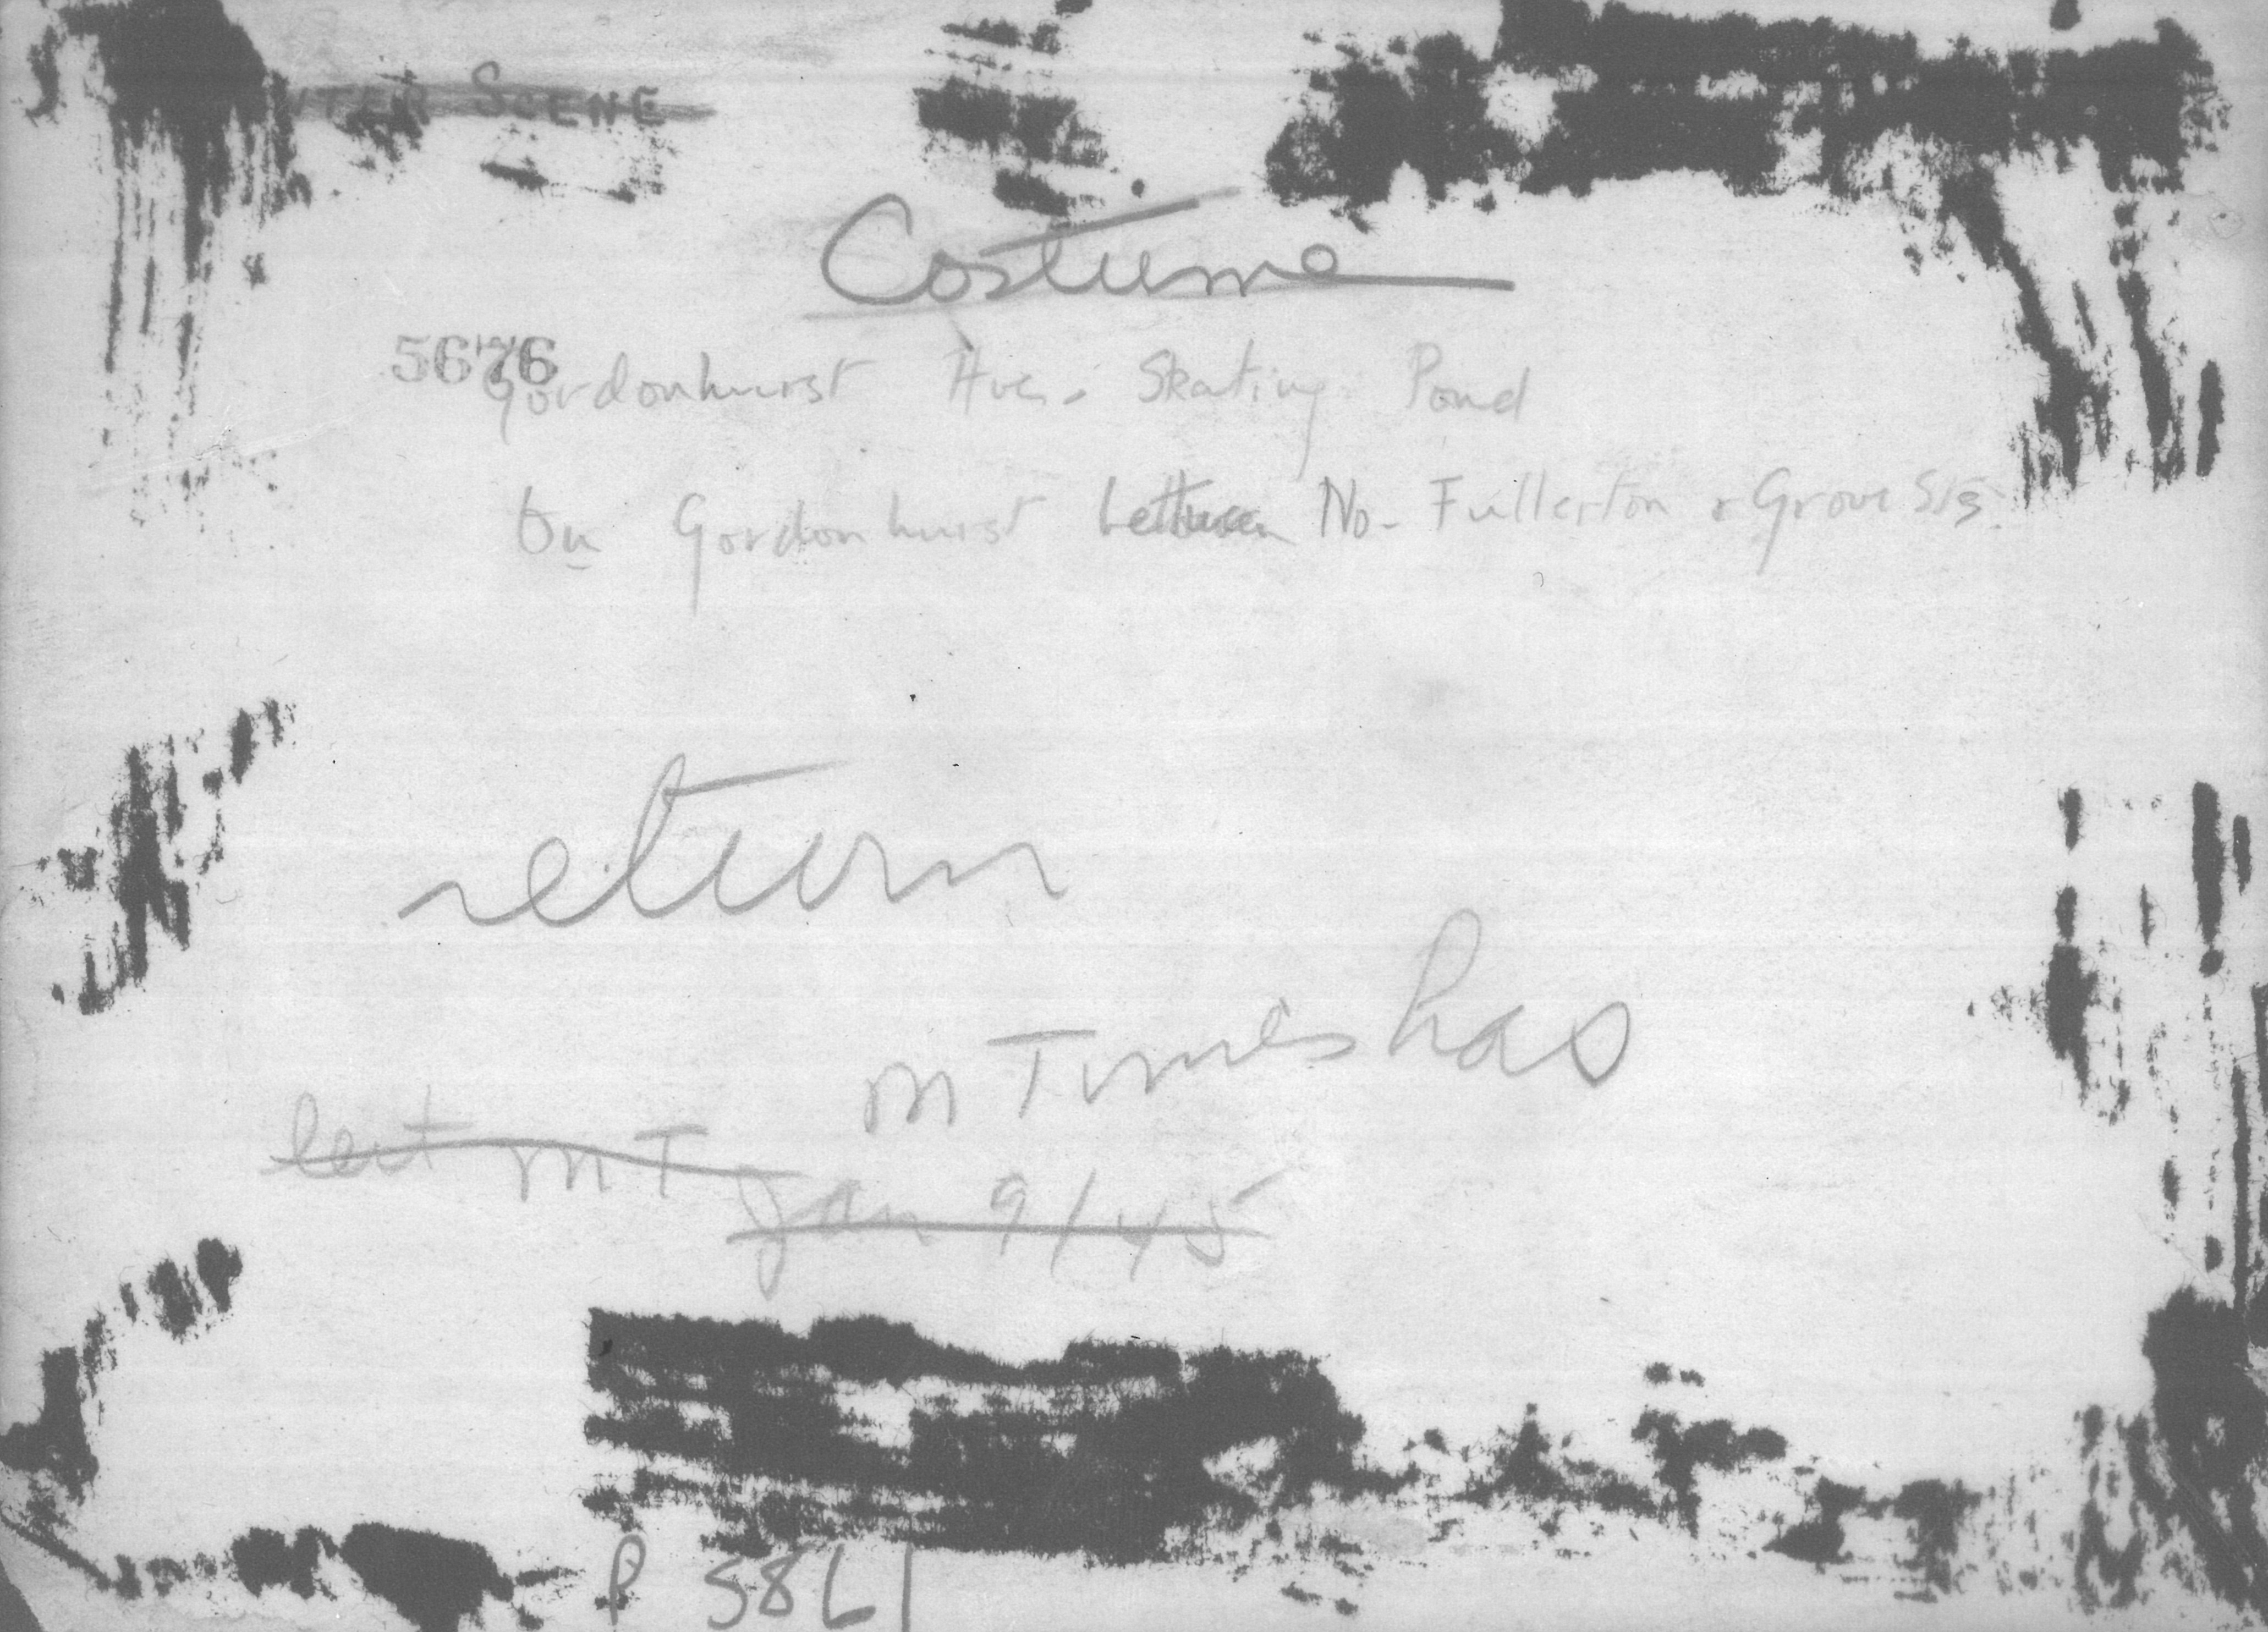 NTER SCENE
Costume
5676
Gordonhurst Ave. Skating Pond
On Gordonhurst between No. Fullerton & Grove Sts.
return
M Times has
lent M T
Jan 9/45
P 5861